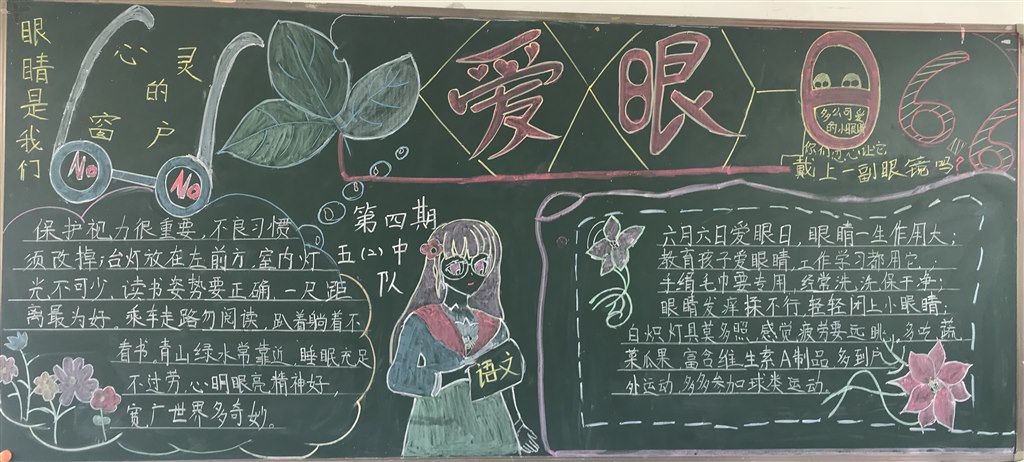 眼睛是我们
心灵的
窗户
No
No
爱眼日
66
多么可爱
的小眼睛
你们忍心让它
戴上一副眼镜吗？
第四期
五(2)中
队
语文
保护视力很重要，不良习惯
须改掉；台灯放在左前方，室内灯
光不可少，读书姿势要正确，一尺距
离最为好，乘车走路勿阅读，趴着躺着不
看书，青山绿水常靠近，睡眠充足
不过劳，心明眼亮精神好，
宽广世界多奇妙。
六月六日爱眼日，眼睛一生作用大；
教育孩子爱眼睛，工作学习都用它；
手绢毛巾要专用，经常洗涤保干净；
眼睛发痒揉不行，轻轻闭上小眼睛；
白炽灯具莫多照，感觉疲劳要远眺，多吃蔬
菜瓜果，富含维生素A制品，多到户
外运动，多多参加球类运动。